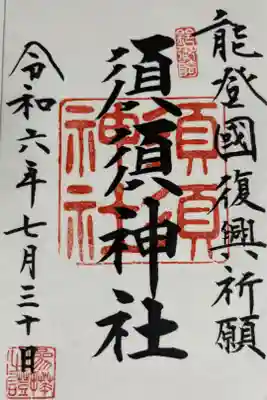 能登國復興祈願
須須神社
須須
神社
令和六年七月三十日